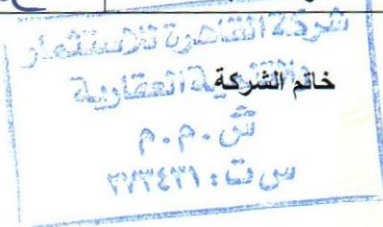 شركة القاهرة للاستثمار
والتنمية العقارية
خاتم الشركة
ش.م.م
س ت: ٣٧٣٤٣١